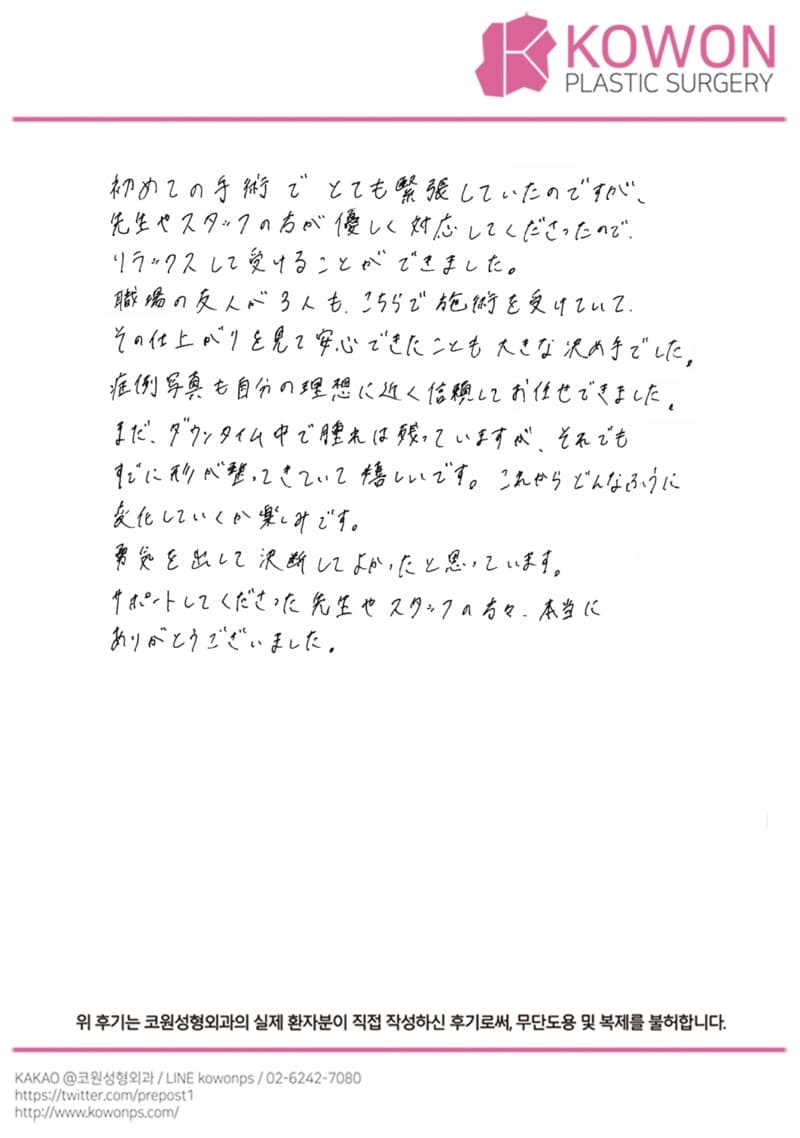 KOWON
PLASTIC SURGERY
初めての手術で とても緊張していたのですが、
先生やスタッフの方が優しく対応してくださったので、
リラックスして受けることができました。
職場の友人が3人も、こちらで施術を受けていて、
その仕上がりを見て安心できたことも大きな決め手でした。
症例写真も自分の理想に近く信頼してお任せできました。
まだ、ダウンタイム中で腫れは残っていますが、それでも
すでに形が整ってきていて嬉しいです。これからどんなふうに
変化していくか楽しみです。
勇気を出して決断してよかったと思っています。
サポートしてくださった先生やスタッフの方々、本当に
ありがとうございました。
위 후기는 코원성형외과의 실제 환자분이 직접 작성하신 후기로써, 무단도용 및 복제를 불허합니다.
KAKAO @코원성형외과 / LINE kowonps / 02-6242-7080
https://twitter.com/prepost1
http://www.kowonps.com/